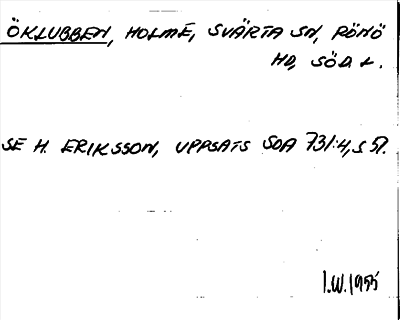 ÖKLUBBEN, HOLME, SVÄRTA SN, RÖNÖ
HD, SÖD L.
SE H. ERIKSSON, UPPSATS SOA 731:4, S 57.
I.W. 1955